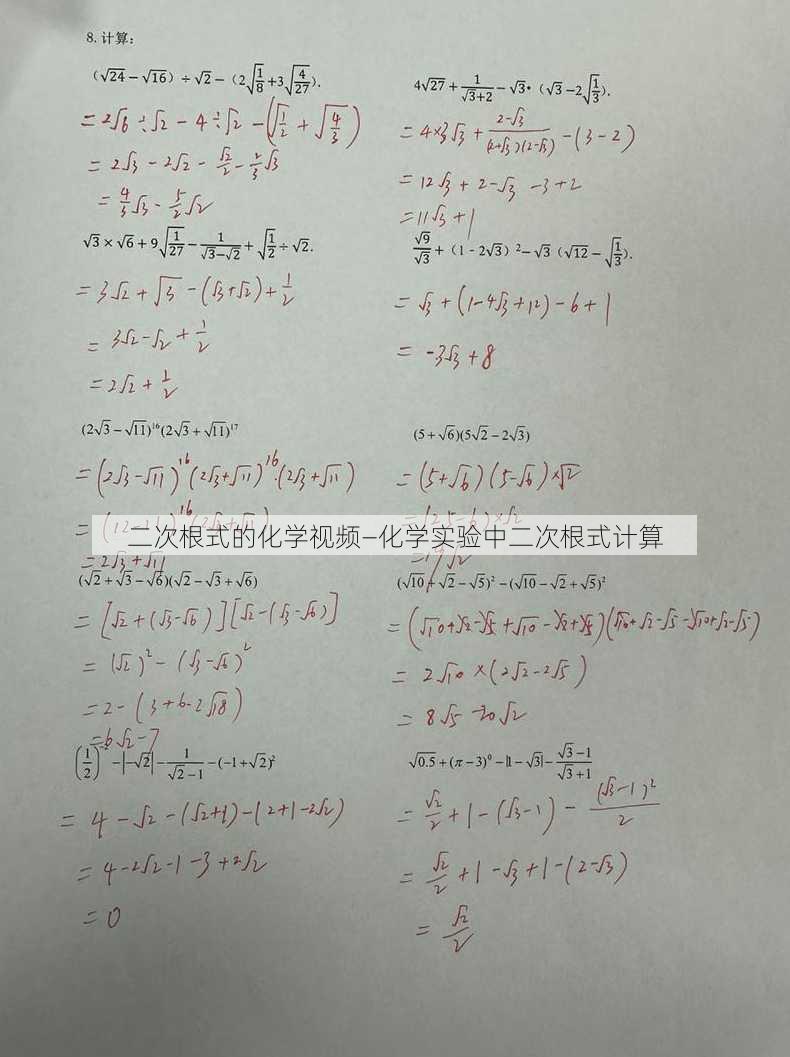 8. 计算：
（√24 − √16）÷ √2 −（2√(1/8) + 3√(4/27)）.
= 2√6 ÷ √2 − 4 ÷ √2 − (√(1/2) + √(4/3))
= 2√3 − 2√2 − √2/2 − 2/3√3
= 4/3√3 − 5/2√2
4√27 + 1/(√3+2) − √3•（√3 − 2√(1/3)）.
= 4×3√3 + (2−√3)/((2+√3)(2−√3)) − (3 − 2)
= 12√3 + 2 − √3 − 3 + 2
= 11√3 + 1
√3 × √6 + 9√(1/27) − 1/(√3−√2) + √(1/2) ÷ √2.
= 3√2 + √3 − (√3+√2) + 1/2
= 3√2 − √2 + 1/2
= 2√2 + 1/2
√9/√3 +（1 - 2√3）² − √3（√12 − √(1/3)）.
= √3 + (1−4√3+12) − 6 + 1
= −3√3 + 8
(2√3 − √11)¹⁶(2√3 + √11)¹⁷
= (2√3−√11)¹⁶(2√3+√11)¹⁶·(2√3+√11)
= (12−11)¹⁶(2√3+√11)
= 2√3+√11
(5 + √6)(5√2 − 2√3)
= (5+√6)(5−√6)×√2
= (25−6)×√2
= 19√2
二次根式的化学视频–化学实验中二次根式计算
(√2 + √3 − √6)(√2 − √3 + √6)
= [√2 + (√3−√6)][√2 − (√3−√6)]
= (√2)² − (√3−√6)²
= 2 − (3+6−2√18)
= 6√2 − 7
(√10 + √2 − √5)² − (√10 − √2 + √5)²
= (√10+√2−√5+√10−√2+√5)(√10+√2−√5−√10+√2−√5)
= 2√10 × (2√2−2√5)
= 8√5 − 20√2
(1/2)⁻² − |−√2| − 1/(√2−1) − (−1+√2)²
= 4 − √2 − (√2+1) − (2+1−2√2)
= 4 − 2√2 − 1 − 3 + 2√2
= 0
√0.5 + (π − 3)⁰ − |1 − √3| − (√3−1)/(√3+1)
= √2/2 + 1 − (√3−1) − (√3−1)²/2
= √2/2 + 1 − √3 + 1 − (2−√3)
= √2/2